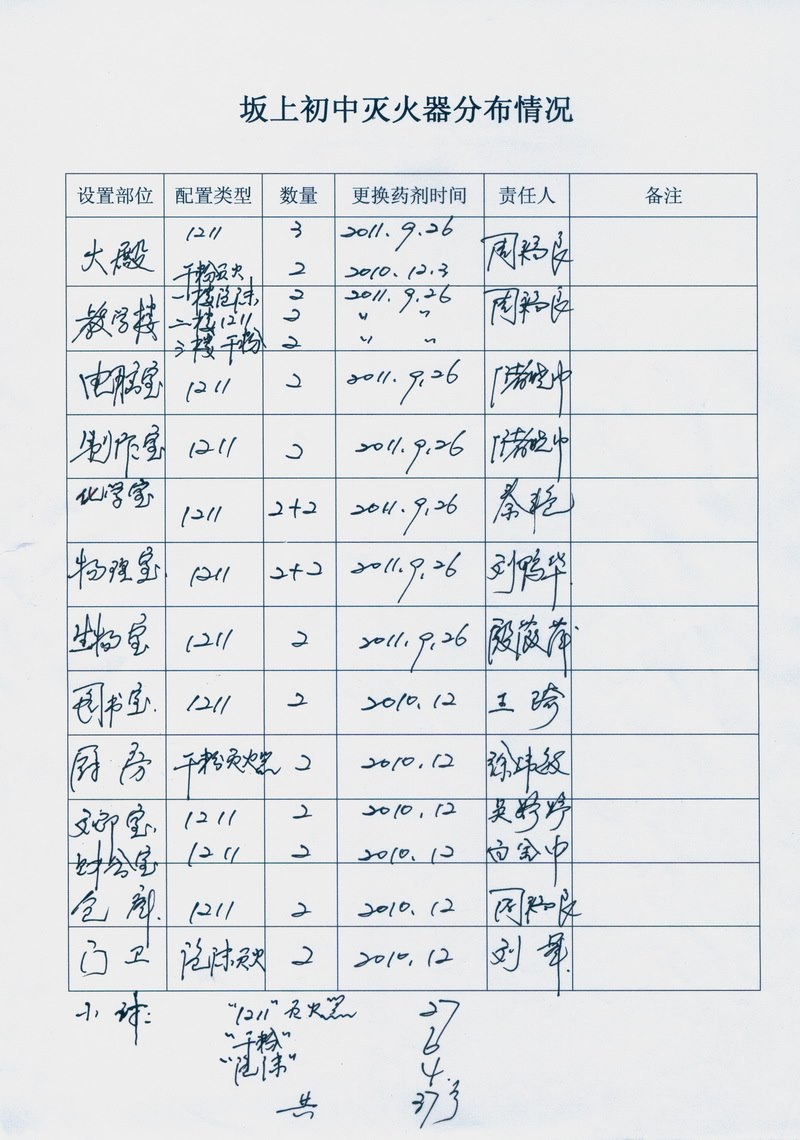 坂上初中灭火器分布情况
设置部位 配置类型 数量 更换药剂时间 责任人 备注
大殿 1211 3 2011.9.26 周福良
干粉灭火 2 2010.12.3
教学楼 一楼泡沫 2 2011.9.26 周福良
二楼1211 2 〃 〃
3楼干粉 2 〃 〃
电脑室 1211 2 2011.9.26
制作室 1211 2 2011.9.26
化学室 1211 2+2 2011.9.26 秦艳
物理室 1211 2+2 2011.9.26 刘鸭华
生物室 1211 2 2011.9.26 殷筱萍
图书室 1211 2 2010.12 王琦
厨房 干粉灭火器 2 2010.12 徐炜敏
文印室 1211 2 2010.12 吴婷婷
财会室 1211 2 2010.12
仓库 1211 2 2010.12 周福良
门卫 泡沫灭火 2 2010.12 刘
小计: "1211"灭火器 27
"干粉" 6
"泡沫" 4
共 37